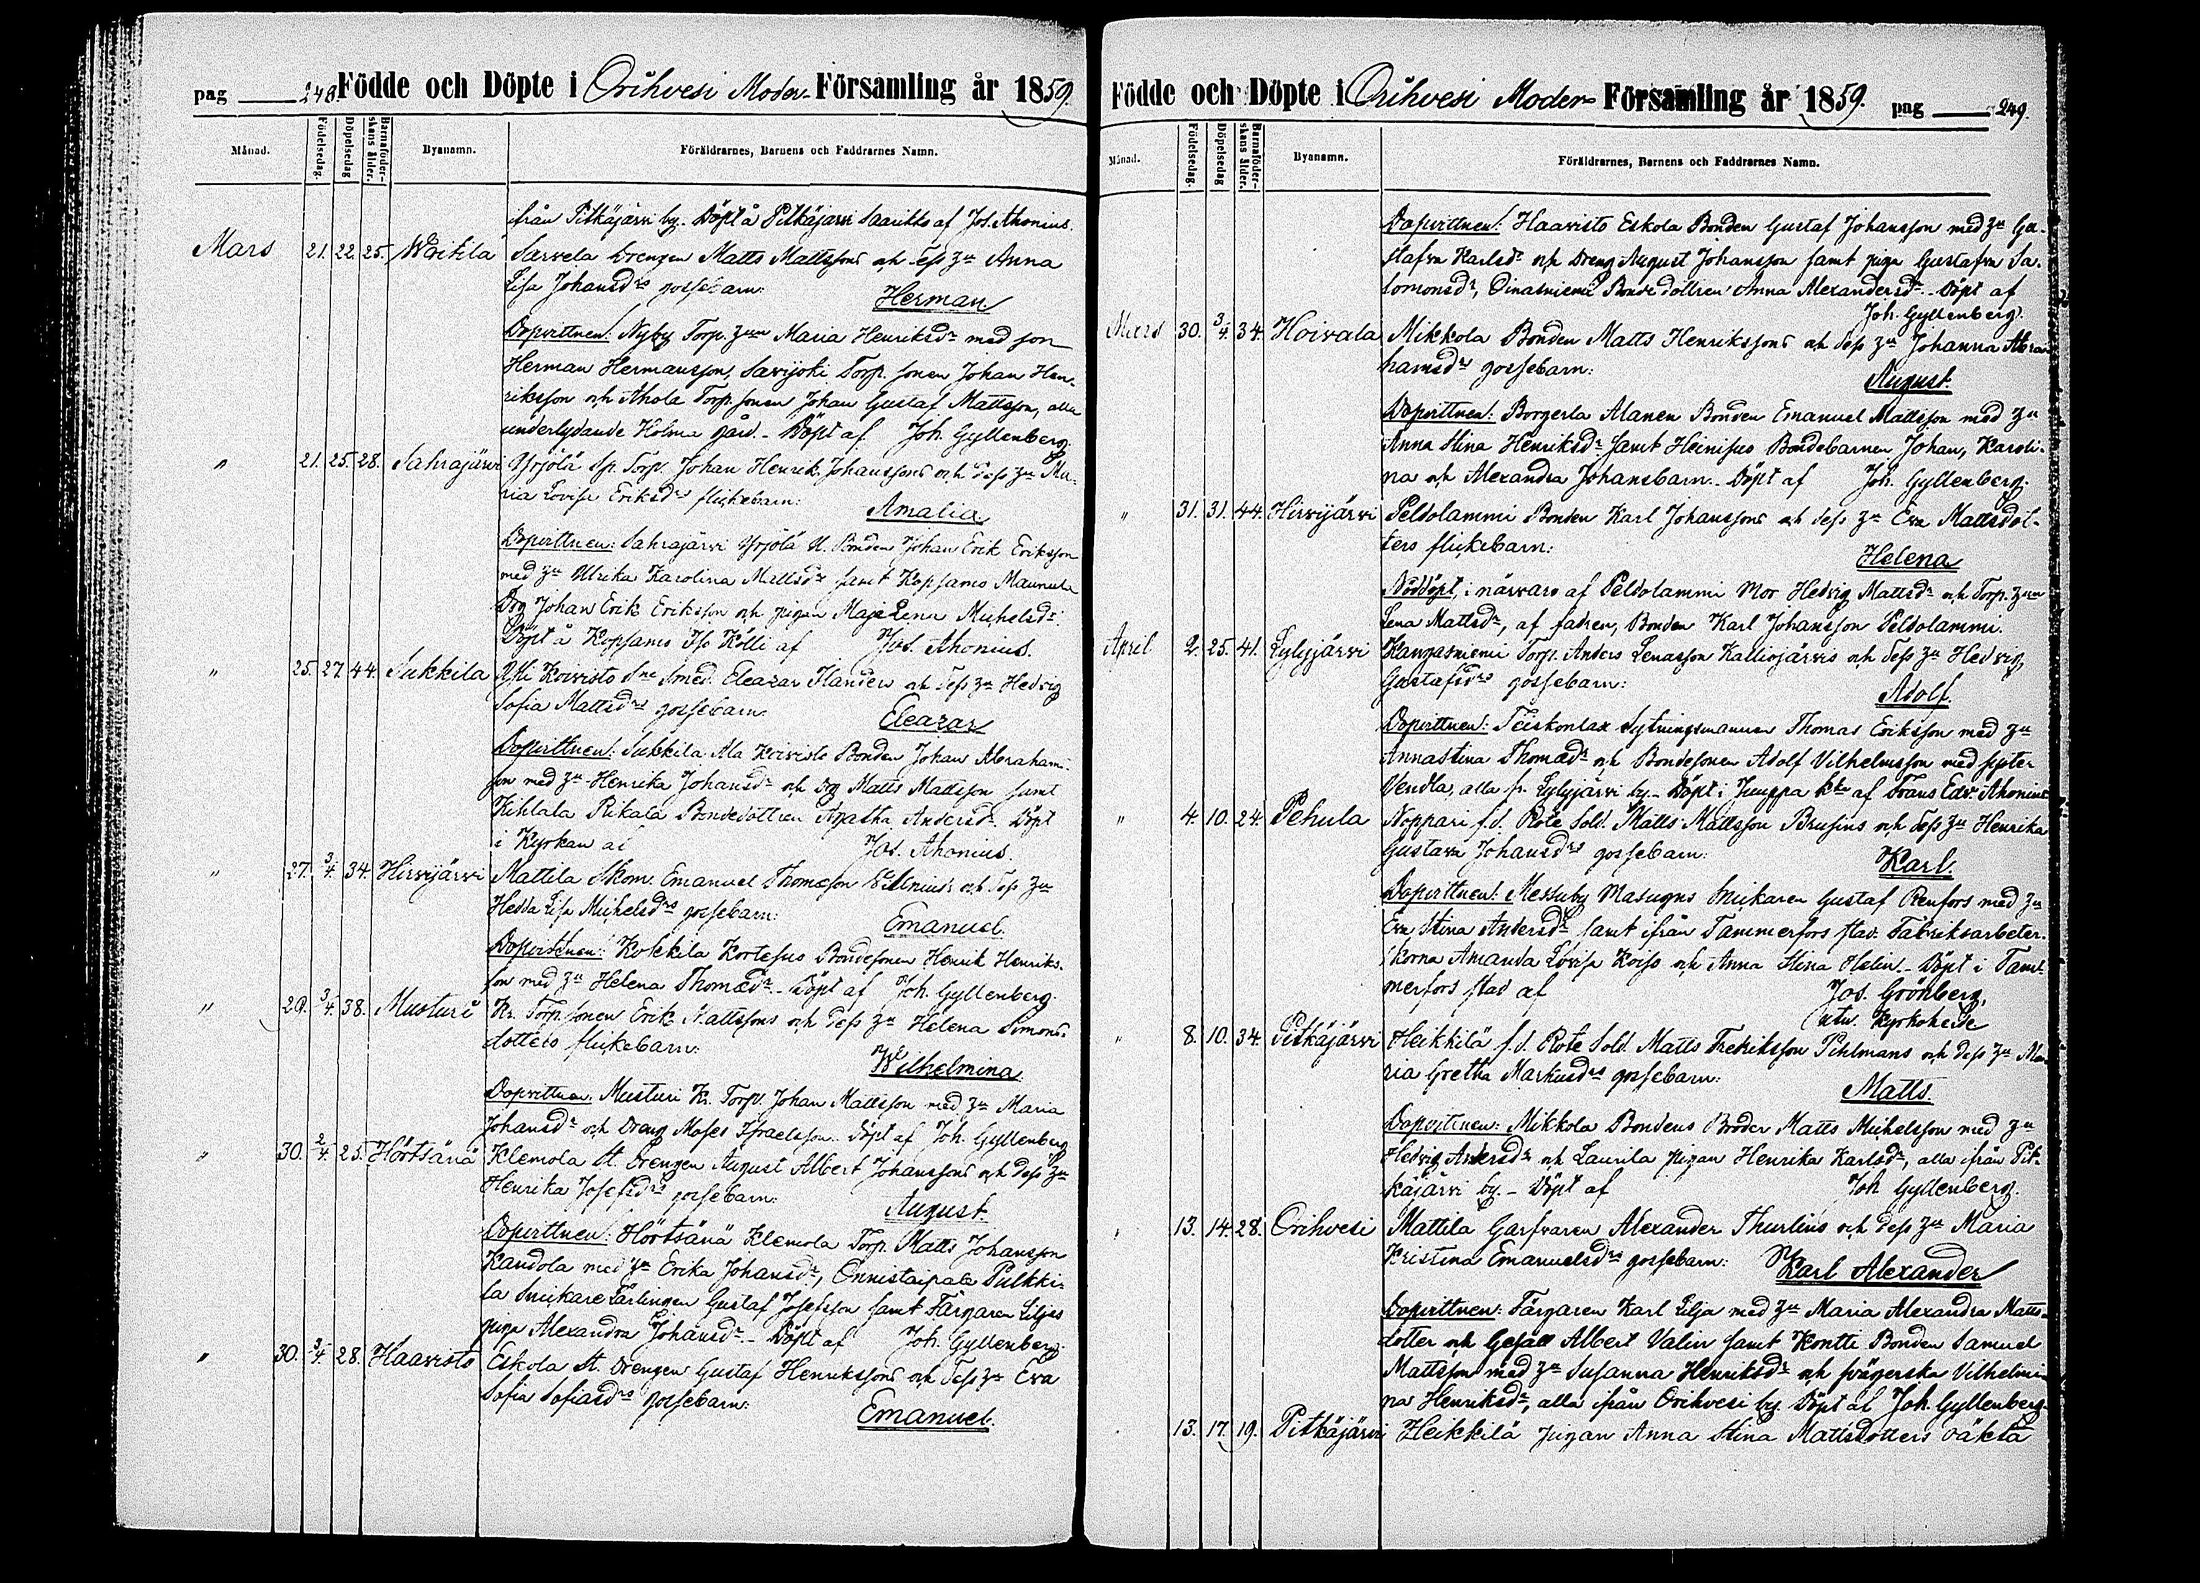 pag 248. Födde och Döpte i Orihvesi Moder- Församling år 1859.
Månad. Födelsedag. Döpelsedag Barnaföderskans ålder. Byanamn. Föräldrarnes, Barnens och Faddrarnes Namn.
ifrån Pitkäjärvi by. Döpt å Pitkäjärvi Saarikko af Jos. Ahonius.
Mars 21. 22. 25. Sarvela Drengen Matts Mattssons och dess hu Anna
Lisa Johansdrs gossebarn: Herman
Dopvittnen: Nyby Torp. hun Maria Henriksdr med son
Herman Hermansson, Savijoki Torp. sonen Johan Hen-
riksson och Ahola Torp. sonen Johan Gustaf Mattsson, alla
underlydande Holma gård. - Döpt af Joh. Gyllenberg.
" 21. 25. 28. Sahrajärvi Yrjölä Torp. Johan Henrik Johanssons och dess hu Ma-
ria Lovisa Eriksdrs flickebarn: Amalia
Dopvittnen: Sahrajärvi Yrjölä Bonden Johan Erik Eriksson
med hu Ulrika Karolina Mattsdr samt Kopsamo Maunula
Drg Johan Erik Eriksson och pigan Maja Lena Michelsdr.
Döpt å Kopsamo Kölli af Jos. Ahonius.
" 25. 27. 44. Sukkila Yli Koivisto Smed. Eleazar Flander och dess hu Hedvig
Sofia Mattsdrs gossebarn: Eleazar
Dopvittnen: Sukkila Ala Koivisto Bonden Johan Abraham-
son med hu Henrika Johansdr och drg Matts Mattsson samt
Kihlala Rikala Bondedottren Agatha Andersdr. Döpt
i Kyrkan af Jos. Ahonius.
" 27. 3/4. 34. Hirvijärvi Mattila Skom. Emanuel Thomasson och dess hu
Hedda Lisa Michelsdrs gossebarn: Emanuel.
Dopvittnen: Kolkkila Kortesus Bondesonen Henrik Henriks-
son med hu Helena Thomædr. - Döpt af Joh. Gyllenberg.
" 29. 3/4. 38. Musturi Kr. Torp. sonen Erik Mattssons och dess hu Helena Simons-
dotters flickebarn: Wilhelmina
Dopvittnen: Musturi Kr. Torp. Johan Mattsson med hu Maria
Johansdr och Dreng Moses Israelsson. Döpt af Joh. Gyllenberg
" 30. 2/4. 25. Hörtsänä Klemola St. Drengen August Albert Johanssons och dess hu
Henrika Josefsdrs gossebarn: August.
Dopvittnen: Hörtsänä Klemola Torp. Matts Johansson
Kandola med hu Erika Johansdr, Onnistaipale Pulkki-
la Snickare Lärlingen Gustaf Josefsson samt Färgaren Liljas
piga Alexandra Johansdr. - Döpt af Joh. Gyllenberg.
" 30. 3/4. 28. Haavisto Eskola St. Drengen Gustaf Henrikssons och dess hu Eva
Sofia Sofiasdrs gossebarn: Emanuel.
Födde och Döpte i Orihvesi Moder- Församling år 1859. pag 249.
Månad. Födelsedag. Döpelsedag Barnaföderskans ålder. Byanamn. Föräldrarnes, Barnens och Faddrarnes Namn.
Dopvittnen: Haavisto Eskola Bonden Gustaf Johansson med hu Gu-
stafva Karlsdr och Dreng August Johansson samt pigan Gustafva Sa-
lomonsdr, Oinasniemi Bondedottren Anna Alexandersdr. Döpt af
Joh. Gyllenberg.
Mars 30. 3/4. 34. Hoivala Mikkola Bonden Matts Henrikssons och dess hu Johanna Abra-
hamsdrs gossebarn: August.
Dopvittnen: Alanen Bonden Emanuel Mattsson med hu
Anna Stina Henriksdr samt Heinisuo Bondebarnen Johan, Karoli-
na och Alexandra Johansbarn. Döpt af Joh. Gyllenberg.
" 31. 31. 44. Hirvijärvi Peldolammi Bonden Karl Johanssons och dess hu Eva Mattsdot-
ters flickebarn: Helena
Nöddöpt, i närvaro af Peldolammi Mor Hedvig Mattsdr och Torp. hun
Lena Mattsdr, af fadren, Bonden Karl Johansson Peldolammi.
April 2. 25. 41. Lylyjärvi Kangasniemi Torp. Anders Lenasson Kalliojärvis och dess hu Hedvig
Gustafsdrs gossebarn: Adolf.
Dopvittnen: Teiskonlax Sytningsmannen Thomas Eriksson med hu
Annastina Thomædr och Bondesonen Adolf Vilhelmsson med syster
Vendla, alla fr. Lylyjärvi by. - Döpt i Juuppa af Frans Edv. Ahonius
" 4. 10. 24. Pehula Noppari f.d. Rote Sold. Matts Mattsson Brusins och dess hu Henrika
Gustava Johansdrs gossebarn: Karl.
Dopvittnen: Messuby Masugns Snickaren Gustaf Renfors med hu
Eva Stina Andersdr samt ifrån Tammerfors stad: Fabriksarbeter-
skorna Amanda Lovisa Koiso och Anna Stina Helin. - Döpt i Tam-
merfors stad af Jos. Grönberg,
Kyrkoherde
" 8. 10. 34. Pitkäjärvi Heikkilä f.d. Rote Sold. Matts Fredriksson Pihlmans och dess hu Ma-
ria Gretha Markusdrs gossebarn: Matts.
Dopvittnen: Mikkola Bondens Broder Matts Michelsson med hu
Hedvig Andersdr och Laurila pigan Henrika Karlsdr, alla ifrån Pit-
käjärvi by. - Döpt af Joh. Gyllenberg.
" 13. 14. 28. Orihvesi Mattila Garfvaren Alexander Thurlins och dess hu Maria
Kristina Emanuelsdrs gossebarn: Karl Alexander
Dopvittnen: Färgaren Karl Lilja med hu Maria Alexandra Matts-
dotter och Gesäll Albert Valin samt Kontti Bonden Samuel
Mattsson med hu Susanna Henriksdr och svägerska Vilhelmi-
na Henriksdr, alla ifrån Orihvesi by. Döpt af Joh. Gyllenberg.
13. 17. 19. Pitkäjärvi Heikkilä Pigan Anna Stina Mattsdotters oäkta